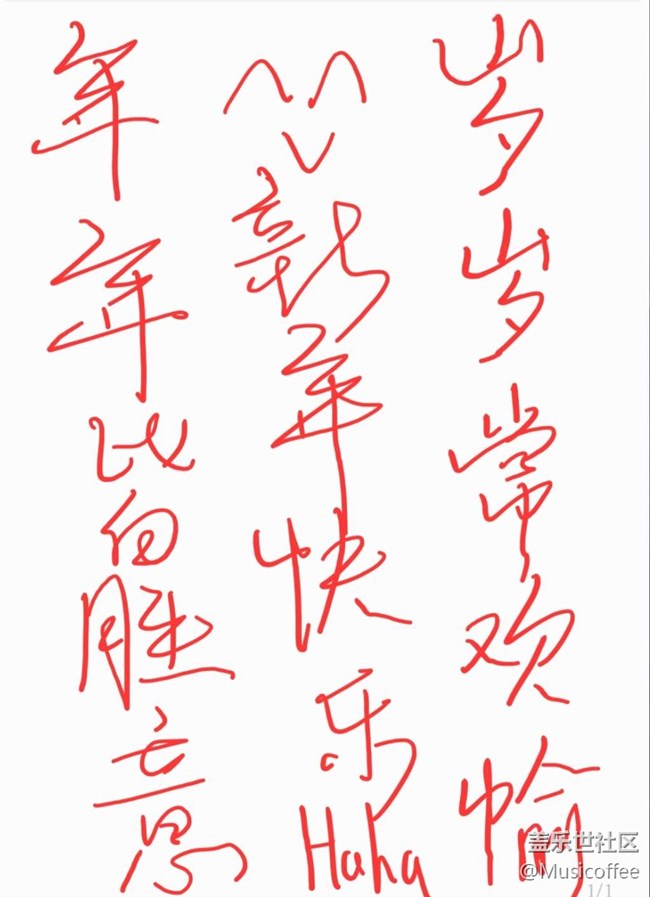 岁岁常欢愉
新年快乐
Haha
年年皆胜意
盖乐世社区
@Musicoffee
1/1